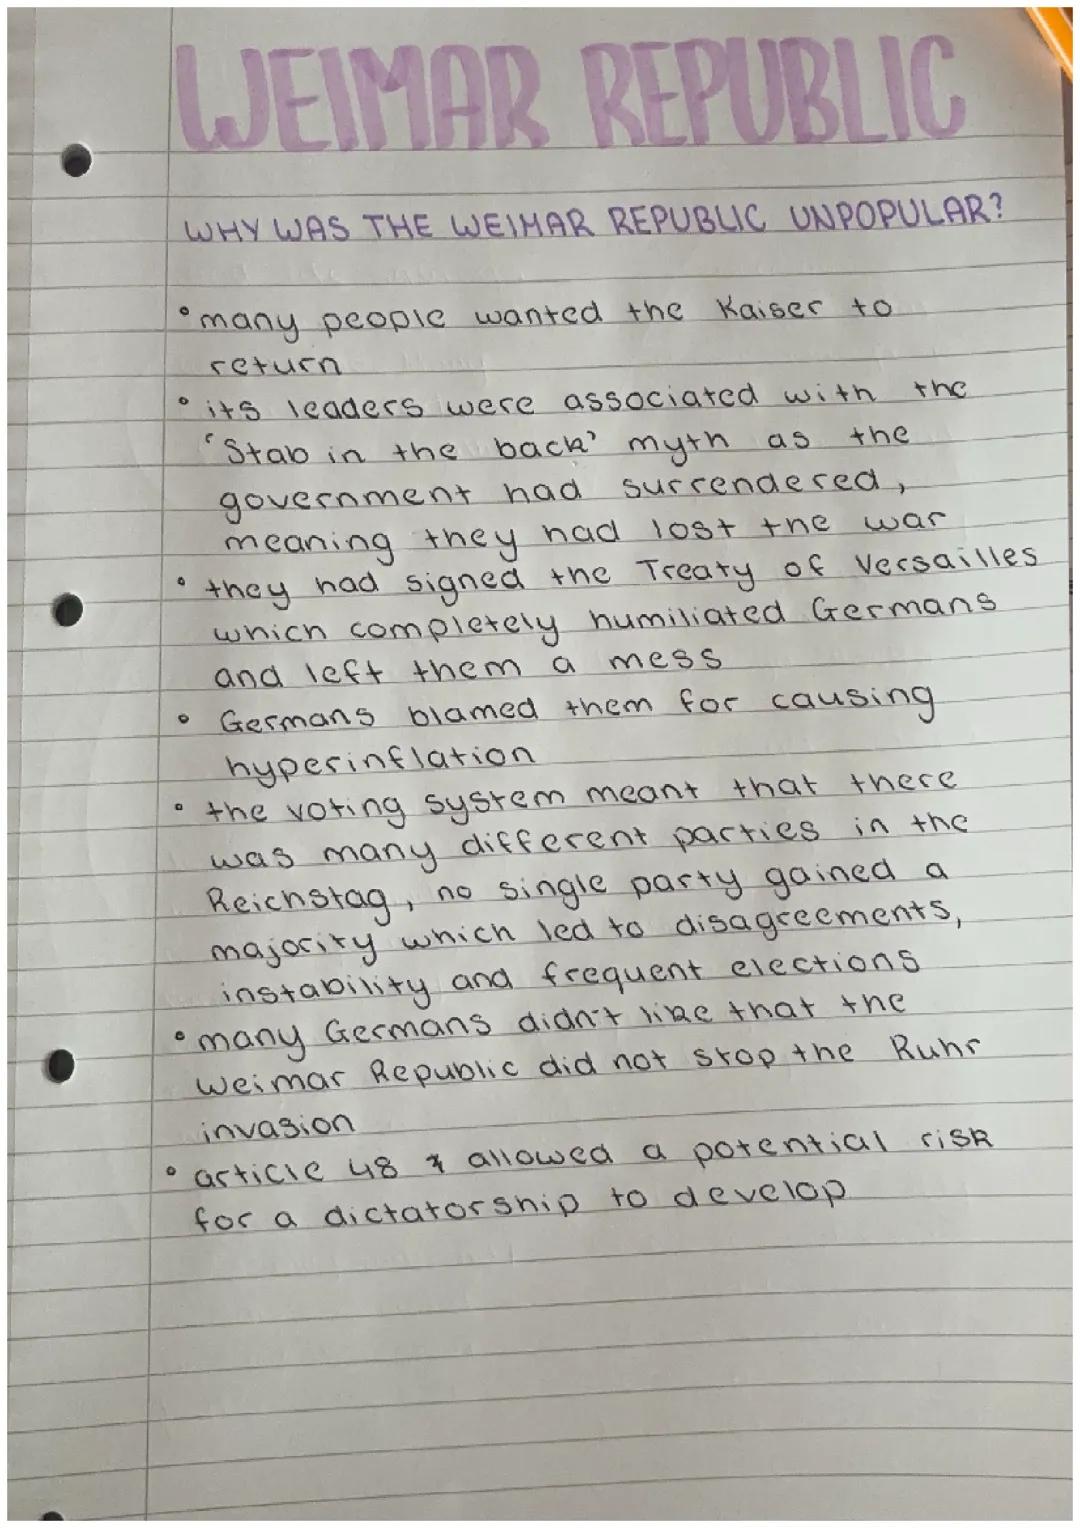 WEIMAR REPUBLIC
WHY WAS THE WEIMAR REPUBLIC UNPOPULAR?
• many people wanted the Kaiser to
return
• its leaders were associated with the
'Stab in the back' myth as the
government had surrendered,
meaning they had lost the war
• they had signed the Treaty of Versailles
which completely humiliated Germans
and left them a mess
• Germans blamed them for causing
hyperinflation
• the voting system meant that there
was many different parties in the
Reichstag, no single party gained a
majority which led to disagreements,
instability and frequent elections
• many Germans didn't like that the
Weimar Republic did not stop the Ruhr
invasion
• article 48 allowed a potential risk
for a dictatorship to develop